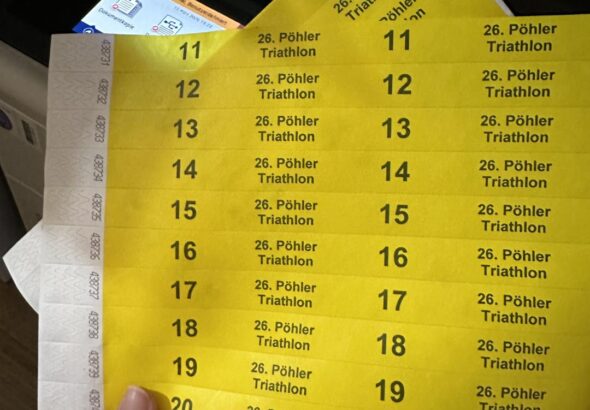 Dokumentkopie
26. Pöhler
Triathlon
Pöhler
438731 11 26. Pöhler Triathlon 11 26. Pöhler Triathlon
438732 12 26. Pöhler Triathlon 12 26. Pöhler Triathlon
438733 13 26. Pöhler Triathlon 13 26. Pöhler Triathlon
438734 14 26. Pöhler Triathlon 14 26. Pöhler Triathlon
438735 15 26. Pöhler Triathlon 15 26. Pöhler Triathlon
438736 16 26. Pöhler Triathlon 16 26. Pöhler Triathlon
438737 17 26. Pöhler Triathlon 17 26. Pöhler Triathlon
438738 18 26. Pöhler Triathlon 18 26. Pöhler Triathlon
438739 19 26. Pöhler Triathlon 19 26. Pöhler Triathlon
20 26. Pöhler 26. Pöhler